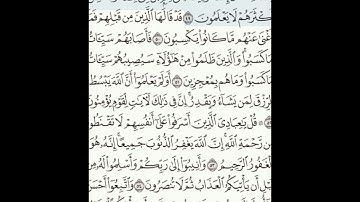 كْثَرَهُمْ لَا يَعْلَمُونَ ٤٩ قَدْ قَالَهَا الَّذِينَ مِن قَبْلِهِمْ فَمَا
أَغْنَىٰ عَنْهُم مَّا كَانُوا يَكْسِبُونَ ٥٠ فَأَصَابَهُمْ سَيِّئَاتُ
مَا كَسَبُوا وَالَّذِينَ ظَلَمُوا مِنْ هَٰؤُلَاءِ سَيُصِيبُهُمْ سَيِّئَاتُ
مَا كَسَبُوا وَمَا هُم بِمُعْجِزِينَ ٥١ أَوَلَمْ يَعْلَمُوا أَنَّ اللَّهَ يَبْسُطُ
الرِّزْقَ لِمَن يَشَاءُ وَيَقْدِرُ إِنَّ فِي ذَٰلِكَ لَآيَاتٍ لِّقَوْمٍ يُؤْمِنُونَ
٥٢ قُلْ يَا عِبَادِيَ الَّذِينَ أَسْرَفُوا عَلَىٰ أَنفُسِهِمْ لَا تَقْنَطُوا
مِن رَّحْمَةِ اللَّهِ إِنَّ اللَّهَ يَغْفِرُ الذُّنُوبَ جَمِيعًا إِنَّهُ هُوَ
الْغَفُورُ الرَّحِيمُ ٥٣ وَأَنِيبُوا إِلَىٰ رَبِّكُمْ وَأَسْلِمُوا لَهُ مِن
قَبْلِ أَن يَأْتِيَكُمُ الْعَذَابُ ثُمَّ لَا تُنصَرُونَ ٥٤ وَاتَّبِعُوا أَحْسَنَ